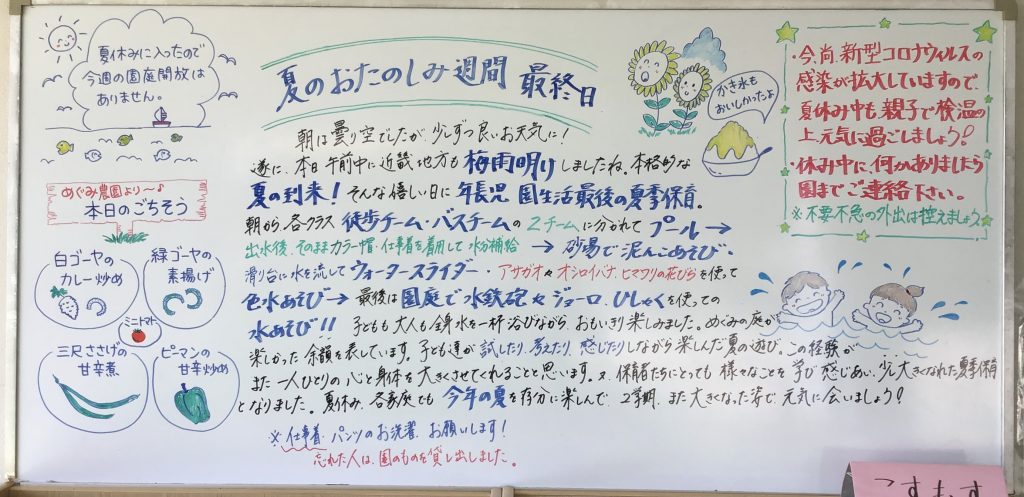 夏休みに入ったので
今週の園庭開放は
ありません。
夏のおたのしみ週間 最終日
かき氷も
おいしかったよ
・今、尚、新型コロナウィルスの
感染が拡大していますので、
夏休み中も、親子で検温の
上、元気に過ごしましょう!
・休み中に、何かありましたら
園までご連絡下さい。
※不要不急の外出は控えましょう。
めぐみ農園より〜♪
本日のごちそう
白ゴーヤの
カレー炒め
緑ゴーヤの
素揚げ
ミニトマト
三尺ささげの
甘辛煮
ピーマンの
甘辛炒め
朝は曇り空でしたが、少しずつ良いお天気に!
遂に、本日午前中に近畿地方も梅雨明けしましたね。本格的な
夏の到来!そんな嬉しい日に年長児 園生活最後の夏季保育。
朝から、各クラス徒歩チーム・バスチームの2チームに分かれてプール→
出水後、そのままカラー帽・仕事着を着用して水分補給→砂場で泥んこあそび・
滑り台に水を流してウォータースライダー・アサガオ々オシロイバナ、ヒマワリの花びらを使って
色水あそび→最後は園庭で水鉄砲々ジョーロ、ひしゃくを使っての
水あそび!!子どもも大人も全身水を一杯浴びながら、おもいきり楽しみました。めぐみの庭が
楽しかった余韻を表しています。子ども達が試したり、考えたり、感じたりしながら楽しんだ夏の遊び。この経験が
また一人ひとりの心と身体を大きくさせてくれることと思います。又、保育者たちにとっても様々なことを学び感じあい、少し大きくなれた夏季保育
となりました。夏休み、各家庭でも今年の夏を存分に楽しんで、2学期、また大きくなった姿で、元気に会いましょう!
※仕事着・パンツのお洗濯、お願いします!
忘れた人は、園のものを貸し出しました。
こすもす